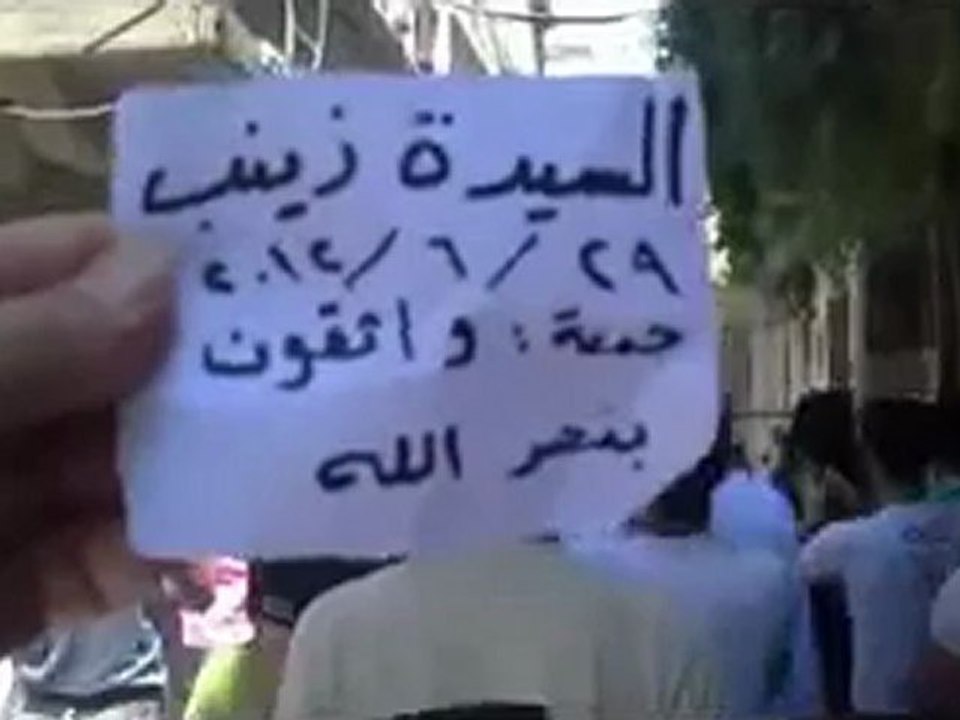 السيدة زينب
٢٩ / ٦ / ٢٠١٢
جمعة : واثقون
بنصر الله